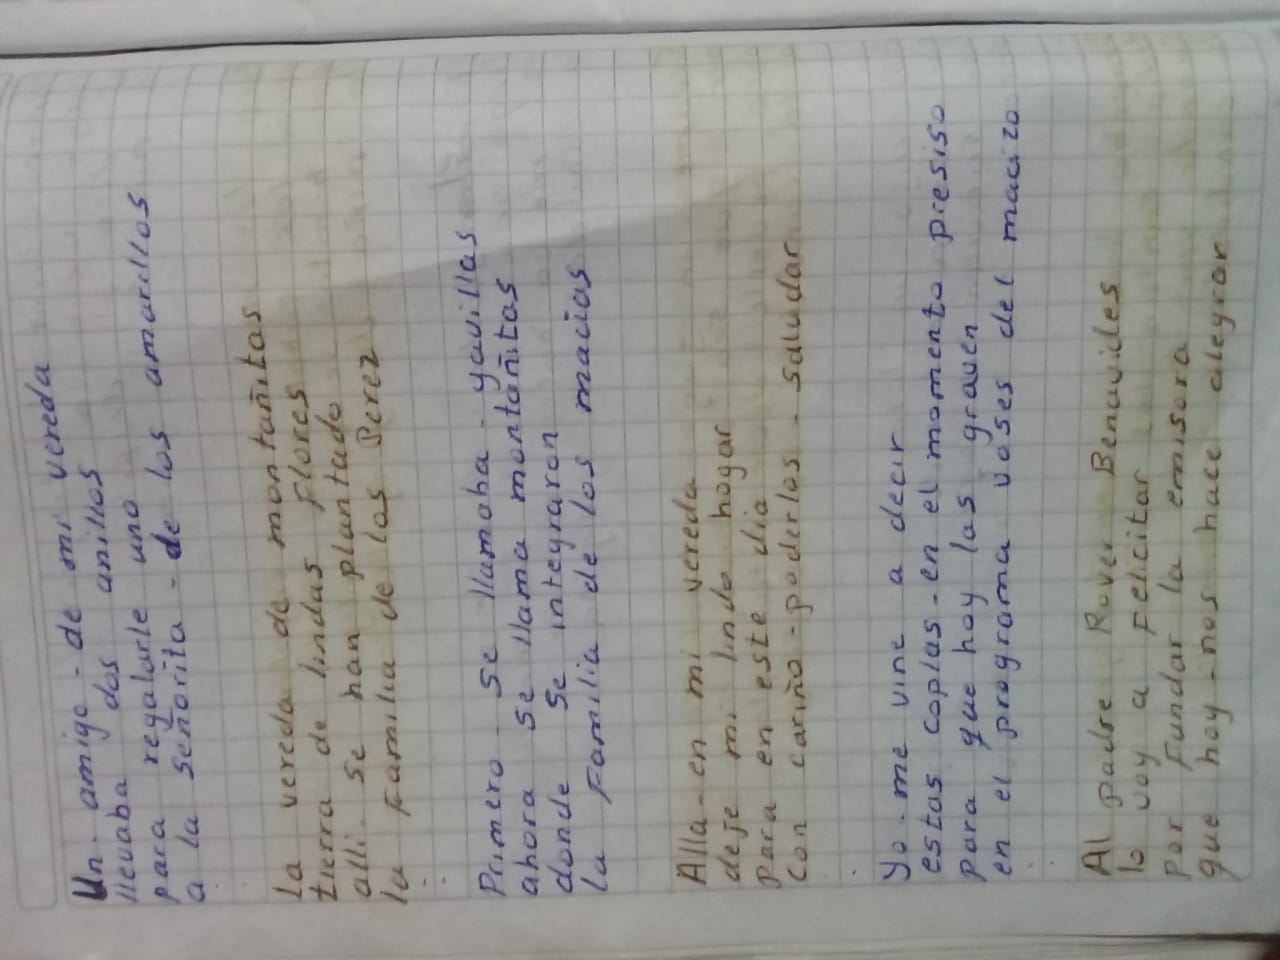 Un - amigo - de mi vereda
llevaba dos anillos
para regalarle uno
a la señorita - de los amarillos
La vereda de montañitas
tierra de lindas Flores
alli - se han plantado
la Familia de los Perez
Primero - se llamaba - gavillas
ahora se llama montañitas
donde se integraron
la Familia de los macias
Alla - en mi vereda
deje mi lindo hogar
Para en este dia
Con cariño - poderlos - saludar
Yo - me vine a decir
estas coplas - en el momento presiso
para que hoy las graven
en el programa voses del macizo
Al padre Rover Benavides
lo voy a Felicitar
Por Fundar la emisora
que hoy - nos hace alegrar